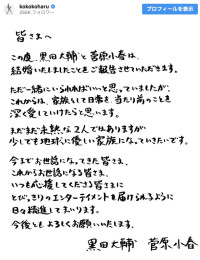 kokokoharu
2568 フォロワー
プロフィールを表示
皆さまへ
この度、黒田大輔と菅原小春は
結婚いたしましたことをご報告させていただきます。
ただ一緒にいられればいいと思っていましたが、
これからは、家族として日常を、当たり前のことを
深く愛していけたらと思います。
まだまだ未熟な2人ではありますが
少しでも地球に優しい家族になっていきたいです。
今までお世話になってきた皆さま、
これからお世話になる皆さま、
いつも応援してくださる皆さまに
とびっきりのエンターテイメントを届けられるように
日々精進してまいります。
今後ともよろしくお願いいたします。
黒田大輔 菅原小春